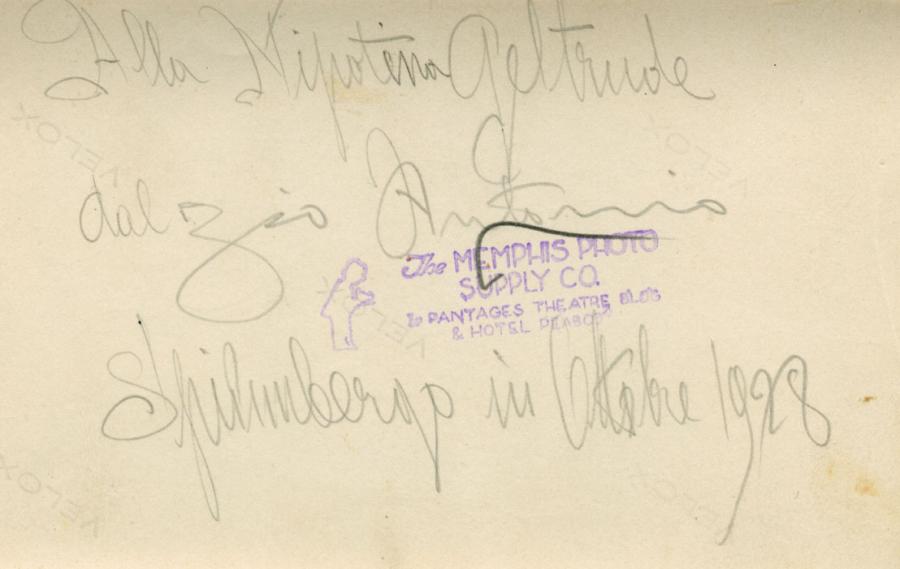 Alla Nipotina Geltrude
dal zio Antonio
The MEMPHIS PHOTO
SUPPLY CO.
PANTAGES THEATRE BLDG
& HOTEL PEABODY
Spilimbergo in Ottobre 1928
VELOX
VELOX
VELOX
VELOX
VELOX